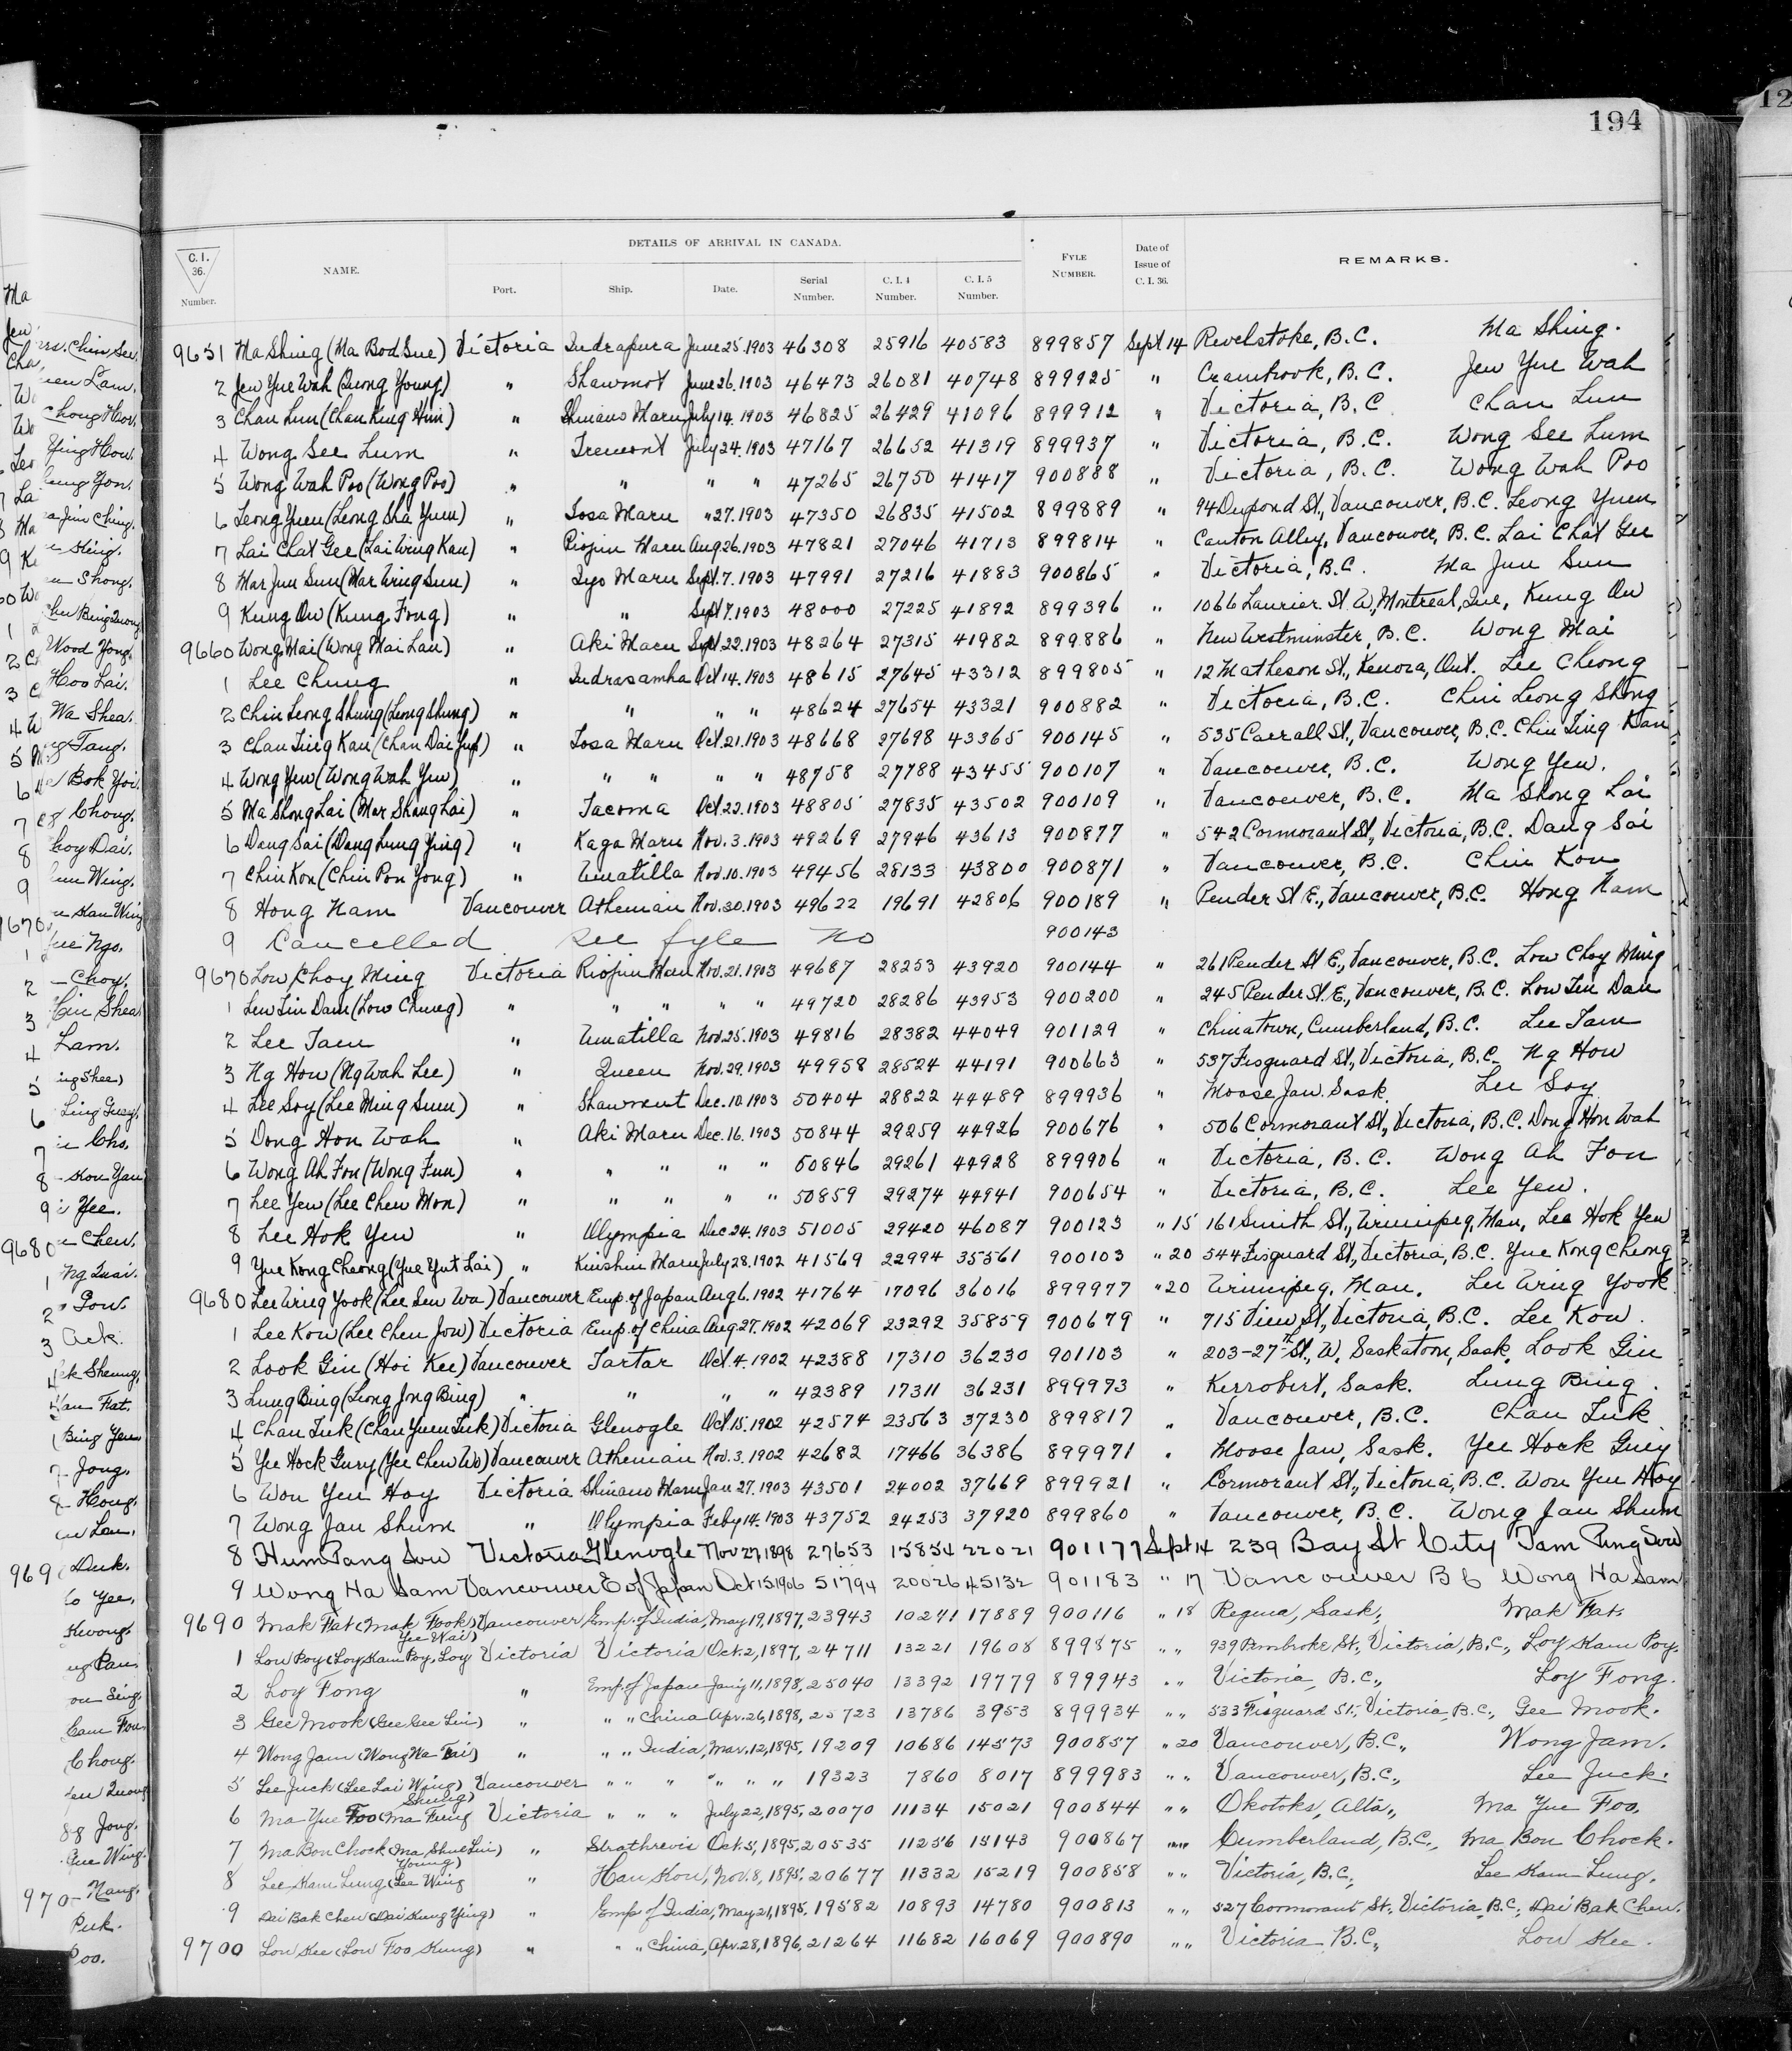 194
C. I. 36. Number. NAME. DETAILS OF ARRIVAL IN CANADA. Port. Ship. Date. Serial Number. C. I. 4 Number. C. I. 5 Number. FYLE NUMBER. Date of Issue of C. I. 36. REMARKS.
9651 Ma Shing (Ma Bod Sue) Victoria Indrapura June 25. 1903 46308 25916 40583 899857 Sept 14 Revelstoke, B.C. Ma Shing.
2 Jew Yue Wah (Quong Young) " Shawmot June 26. 1903 46473 26081 40748 899925 " Cranbrook, B.C. Jew Yue Wah
3 Chan Lum (Chan King Him) " Shinano Maru July 14. 1903 46825 26429 41096 899912 " Victoria, B.C. Chan Lum
4 Wong See Lum " Tremont July 24. 1903 47167 26652 41319 899937 " Victoria, B.C. Wong See Lum
5 Wong Wah Poo (Wong Poo) " " " " 47265 26750 41417 900888 " Victoria, B.C. Wong Wah Poo
6 Leong Yuen (Leong Sha Yuen) " Tosa Maru " 27. 1903 47350 26835 41502 899889 " 94 Dupond St., Vancouver, B.C. Leong Yuen
7 Lai Chat Gee (Lai Wing Kau) " Riojun Maru Aug 26. 1903 47821 27046 41713 899814 " Canton Alley, Vancouver, B.C. Lai Chat Gee
8 Mar Jun Sun (Mar Wing Sun) " Iyo Maru Sept. 7. 1903 47991 27216 41883 900865 " Victoria, B.C. Ma Jun Sun
9 Kung On (Kung Fong) " " Sept 7. 1903 48000 27225 41892 899396 " 1066 Laurier St. W, Montreal, Que, Kung On
9660 Wong Mai (Wong Mai Lau) " Aki Maru Sept. 22. 1903 48264 27315 41982 899886 " New Westminster, B.C. Wong Mai
1 Lee Chung " Indrasamha Oct 14. 1903 48615 27645 43312 899805 " 12 Matheson St., Kenora, Ont. Lee Cheong
2 Chin Leong Shung (Leong Shung) " " " " 48624 27654 43321 900882 " Victoria, B.C. Chin Leong Shong
3 Chan Ting Kau (Chan Dai Yup) " Tosa Maru Oct. 21. 1903 48668 27698 43365 900145 " 535 Carrall St., Vancouver, B.C. Chin Ting Kan
4 Wong Yew (Wong Wah Yew) " " " " " 48758 27788 43455 900107 " Vancouver, B.C. Wong Yew.
5 Ma Shong Lai (Mar Shang Lai) " Tacoma Oct. 22. 1903 48805 27835 43502 900109 " Vancouver, B.C. Ma Shong Lai
6 Dang Sai (Dang Lung Ying) " Kaga Maru Nov. 3. 1903 49269 27946 43613 900877 " 542 Cormorant St, Victoria, B.C. Dang Sai
7 Chin Kon (Chin Pon Yong) " Umatilla Nov. 10. 1903 49456 28133 43800 900871 " Vancouver, B.C. Chin Kon
8 Hong Nam Vancouver Athenian Nov. 30. 1903 49622 19691 42806 900189 " Pender St E., Vancouver, B.C. Hong Nam
9 Cancelled see fyle no 900143
9670 Low Choy Ming Victoria Riojun Maru Nov. 21. 1903 49687 28253 43920 900144 " 261 Pender St E., Vancouver, B.C. Low Choy Ming
1 Lew Lin Dam (Low Chung) " " " " " 49720 28286 43953 900200 " 245 Pender St. E., Vancouver, B.C. Low Lin Dan
2 Lee Tam " Umatilla Nov. 25. 1903 49816 28382 44049 901129 " Chinatown, Cumberland, B.C. Lee Tam
3 Ng How (Ng Wah Lee) " Queen Nov. 29. 1903 49958 28524 44191 900663 " 537 Fisguard St, Victoria, B.C. Ng How
4 Lee Soy (Lee Ming Suen) " Shawmut Dec. 10. 1903 50404 28822 44489 899936 " Moose Jaw. Sask. Lee Soy
5 Dong Hon Wah " Aki Maru Dec. 16. 1903 50844 29259 44926 900676 " 506 Cormorant St., Victoria, B.C. Dong Hon Wah
6 Wong Ah Fon (Wong Fun) " " " " " 50846 29261 44928 899906 " Victoria, B.C. Wong Ah Fon
7 Lee Yew (Lee Chew Mon) " " " " " 50859 29274 44941 900654 " Victoria, B.C. Lee Yew.
8 Lee Hok Yew " Olympia Dec 24. 1903 51005 29420 46087 900123 " 15 161 Smith St., Winnipeg, Man, Lee Hok Yew
9 Yue Kong Cheong (Yue Yut Lai) " Kinshiu Maru July 28. 1902 41569 22994 35561 900103 " 20 544 Fisguard St., Victoria, B.C. Yue Kong Cheong
9680 Lee Wing Yook (Lee Sew Wa) Vancouver Emp. of Japan Aug 6. 1902 41764 17096 36016 899977 " 20 Winnipeg, Man. Lee Wing Yook
1 Lee Kow (Lee Chew Jow) Victoria Emp. of China Aug. 27. 1902 42069 23292 35859 900679 " 715 View St., Victoria, B.C. Lee Kow.
2 Look Gin (Hoi Kee) Vancouver Tartar Oct. 4. 1902 42388 17310 36230 901103 " 203-27th St., W. Saskatoon, Sask. Look Gin
3 Lung Bing (Leong Jong Bing) " " " " 42389 17311 36231 899973 " Kerrobert, Sask. Lung Bing.
4 Chan Tuk (Chan Yuen Tuk) Victoria Glenogle Oct. 15. 1902 42574 23563 37230 899817 " Vancouver, B.C. Chan Tuk
5 Yee Hock Guey (Yee Chew Wo) Vancouver Athenian Nov. 3. 1902 42682 17466 36386 899971 " Moose Jaw, Sask. Yee Hock Guey
6 Won Yeu Hoy Victoria Shinano Maru Jan 27. 1903 43501 24002 37669 899921 " Cormorant St., Victoria, B.C. Won Yeu Hoy
7 Wong Jau Shum " Olympia Feby 14. 1903 43752 24253 37920 899860 " Vancouver, B.C. Wong Jau Shum
8 Hum Pang Sow Victoria Glenogle Nov 27, 1898 27653 15854 22021 901177 Sept 14 239 Bay St City Tam Ping Sow
9 Wong Ha Sam Vancouver E of Japan Oct 15 1906 51794 20026 45132 901183 " 17 Vancouver B C Wong Ha Sam
9690 Mak Fat (Mak Fook) Vancouver Emp. of India, May 19, 1897, 23943 10271 17889 900116 " 18 Regina, Sask., Mak Fat.
1 Lou Poy (Loy Kam Poy, Loy Yee Wai) Victoria Victoria Oct. 2, 1897, 24711 13221 19608 899875 " " 939 Pembroke St., Victoria, B.C., Loy Kam Poy.
2 Loy Fong " Emp. of Japan Jany 11, 1898, 25040 13392 19779 899943 " " Victoria, B.C., Loy Fong.
3 Gee Mook (Gee Gee Lin) " " " China Apr. 26, 1898, 25723 13786 3953 899934 " " 533 Fisguard St., Victoria, B.C., Gee Mook.
4 Wong Jam (Wong Wa Tai) " " " India, Mar. 12, 1895, 19209 10686 14573 900857 " 20 Vancouver, B.C., Wong Jam.
5 Lee Juck (Lee Lai Wing) Vancouver " " " " " " 19323 7860 8017 899983 " " Vancouver, B.C., Lee Juck.
6 Ma Yue Foo (Ma Fung Shung) Victoria " " " July 22, 1895, 20070 11134 15021 900844 " " Okotoks, Alta., Ma Yue Foo.
7 Ma Bon Chock (Ma Shue Lin) " Strathnevis Oct. 5, 1895, 20535 11256 15143 900867 " " Cumberland, B.C., Ma Bon Chock.
8 Lee Kam Lung (Lee Wing Young) " Han Kow, Nov. 8, 1895, 20677 11332 15219 900858 " " Victoria, B.C., Lee Kam Lung.
9 Dai Bak Chew (Dai Kung Ying) " Emp of India, May 21, 1895, 19582 10893 14780 900813 " " 527 Cormorant St., Victoria, B.C., Dai Bak Chew.
9700 Low Kee (Low Foo Kung) " " " China, Apr. 28, 1896, 21264 11682 16069 900890 " " Victoria B.C., Low Kee.